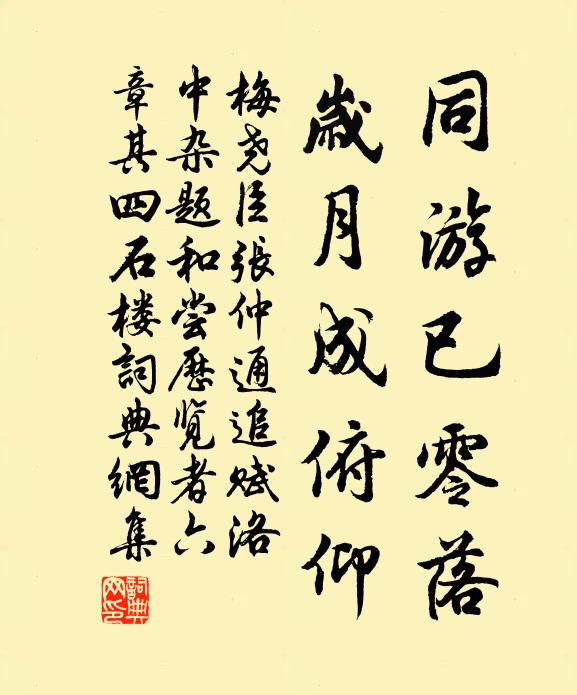 同游已零落
歲月成俯仰
梅尧臣張仲通追赋洛
中杂题和尝歷览者六
章其四石楼詞典網集
詞典
网印